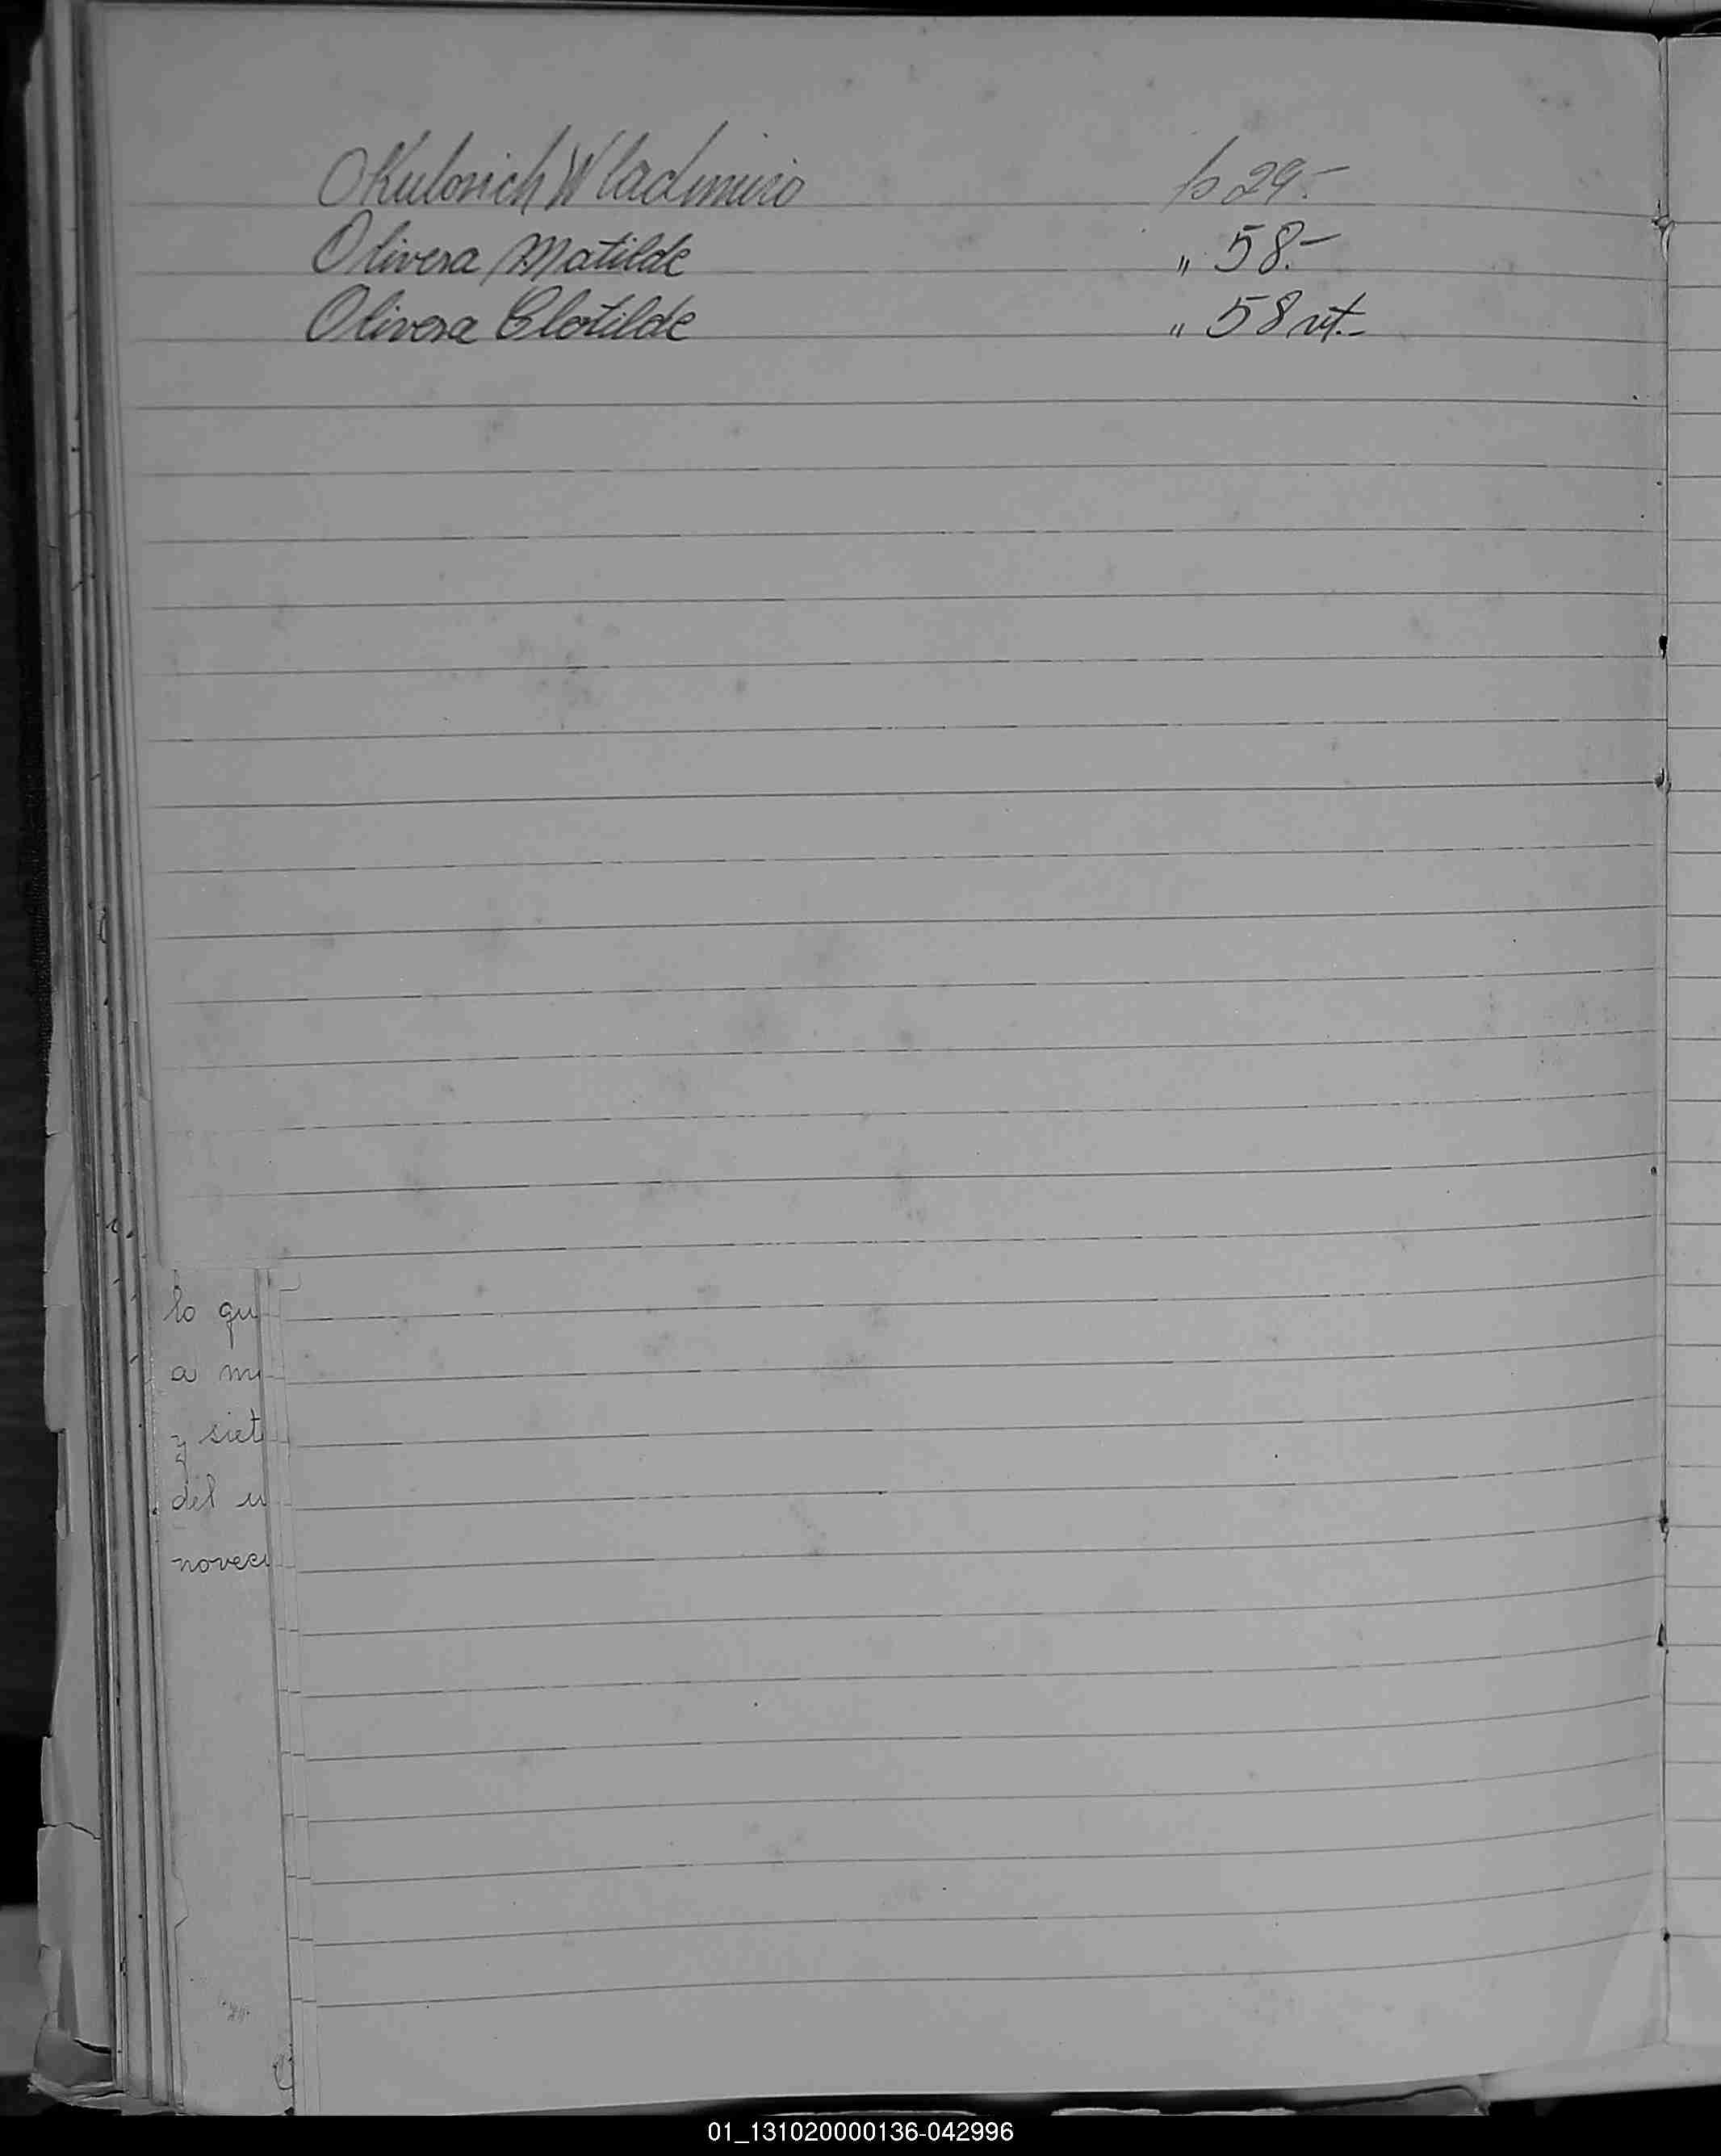 Okulovich Wladimiro fo 29.-
Olivera Matilde " 58.-
Olivera Clotilde " 58 vt.-
lo qu
a mi
y siet
del u
novec
01_131020000136-042996